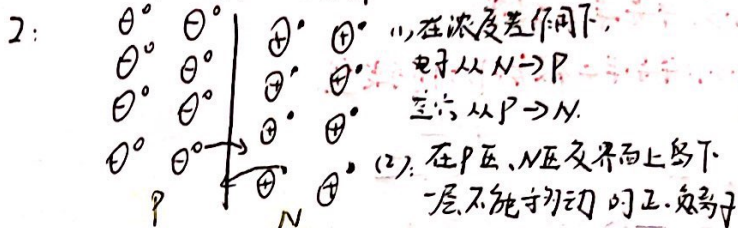 2:
(1), 在浓度差作用下,
电子从N→P
空穴从P→N.
(2): 在P区、N区交界面上留下
一层不能移动的正、负离子
P N